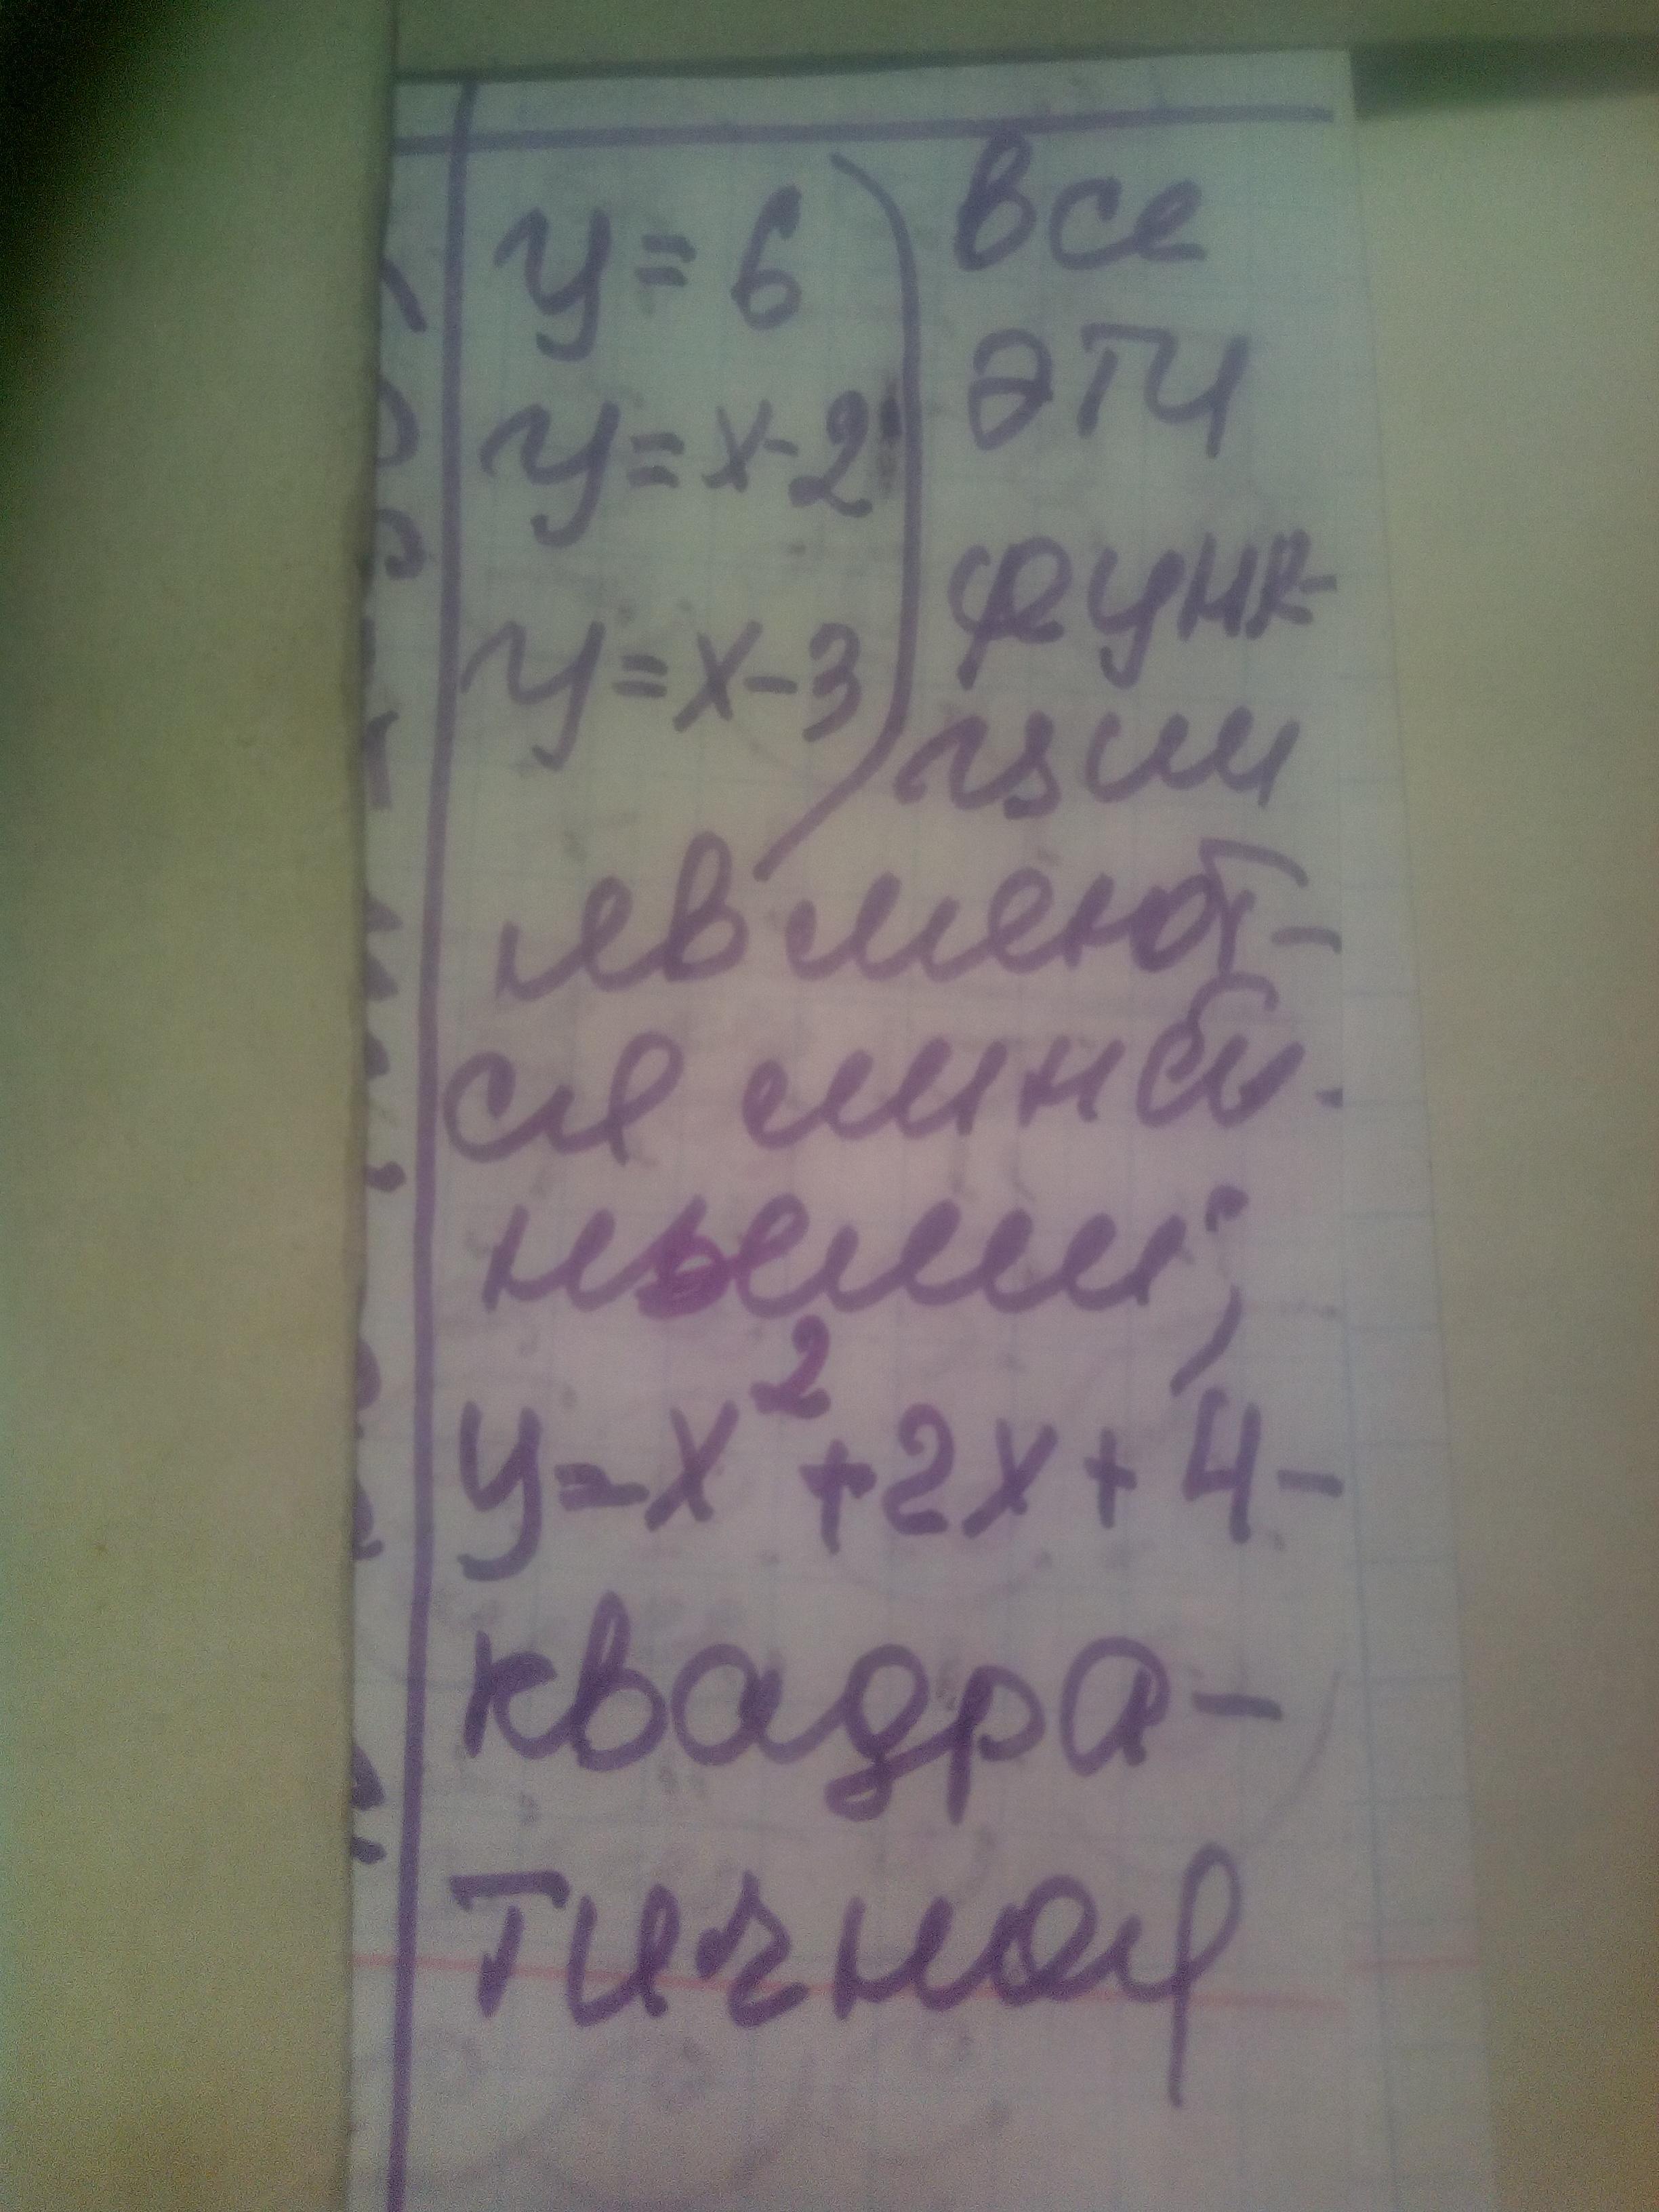 y = 6
y = x - 2
y = x - 3
все
эти
функ-
ции
являют-
ся линей-
ными;
y = x² + 2x + 4 -
квадра-
тичная